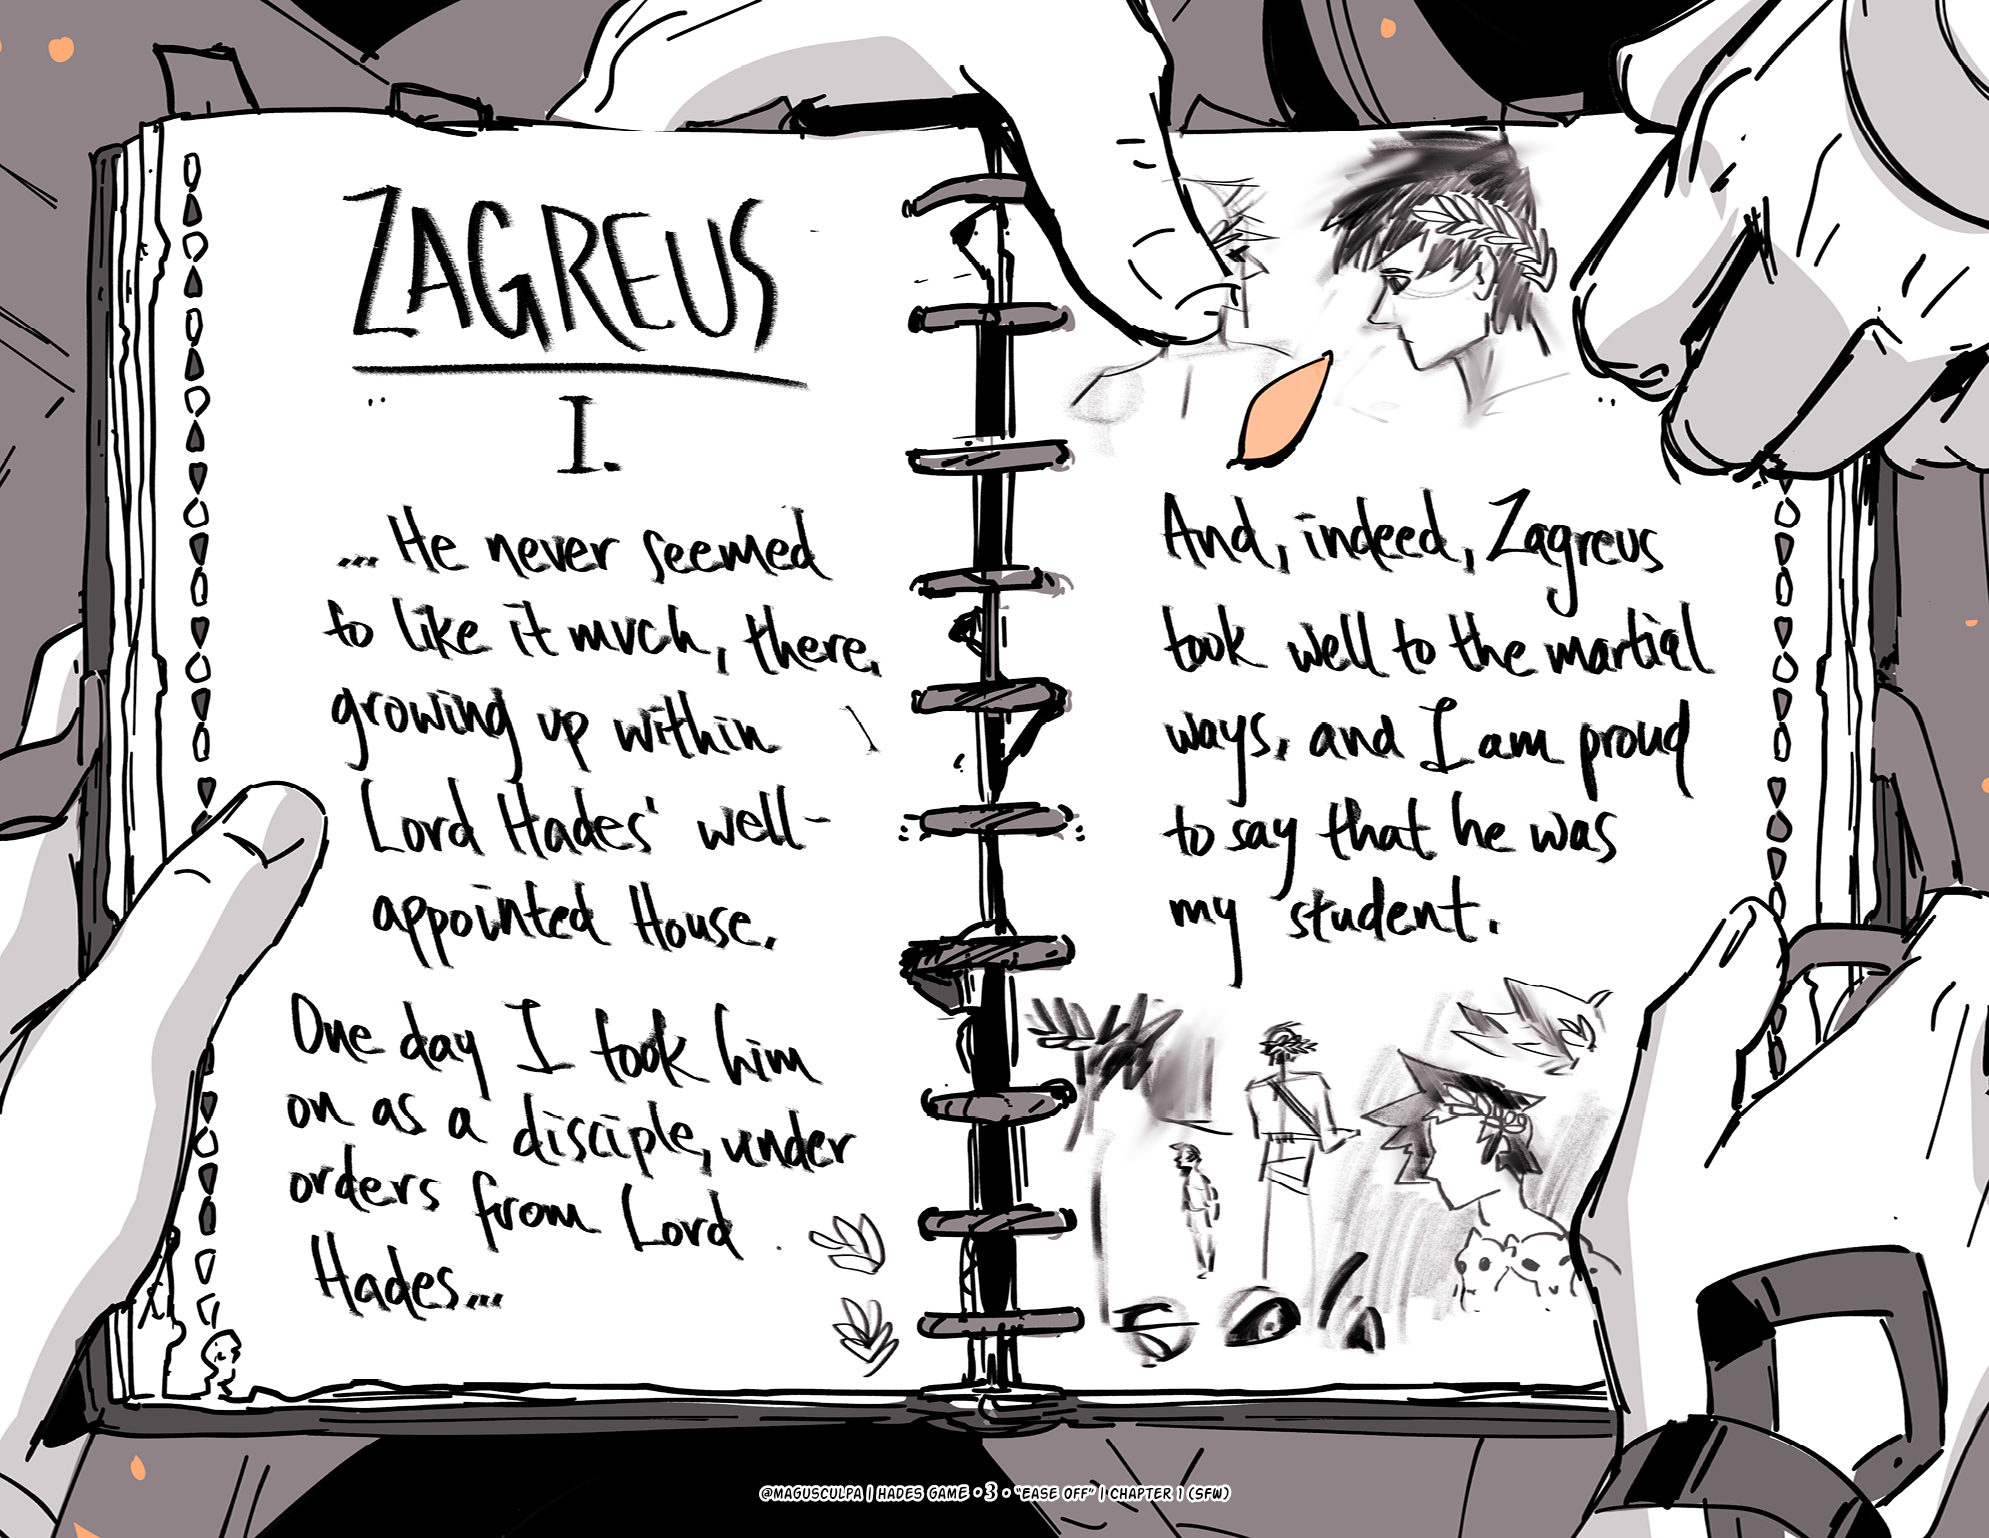 ZAGREUS
I.
... He never seemed
to like it much, there,
growing up within
Lord Hades' well-
appointed House.
One day I took him
on as a disciple, under
orders from Lord
Hades...
And, indeed, Zagreus
took well to the martial
ways, and I am proud
to say that he was
my student.
@MAGUSCULPA | HADES GAME • 3 • "EASE OFF" | CHAPTER 1 (SFW)